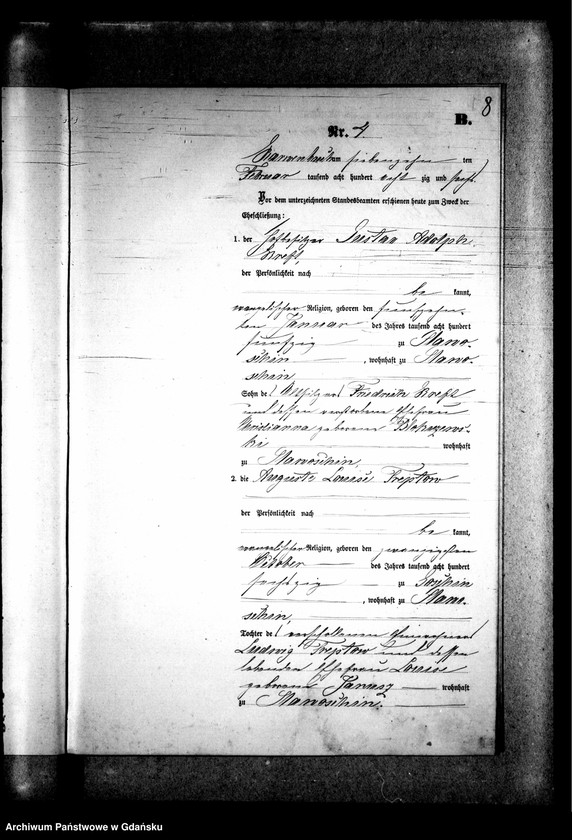 8
B.
Nr. 4.
siebenzehn ten
Februar tausend acht hundert acht zig und sechs.
Vor dem unterzeichneten Standesbeamten erschienen heute zum Zweck der
Eheschließung:
1. der Hofbesitzer Gustav Adolph
Kreft,
der Persönlichkeit nach
be kannt,
evangelischer Religion, geboren den fünfzehn-
ten Januar des Jahres tausend acht hundert
fünfzig zu
, wohnhaft zu
Sohn des Altsitzers Friedrich Kreft
und dessen verstorbene Ehefrau
geborene
wohnhaft
zu
2. die Auguste Louise Treptow
der Persönlichkeit nach
be kannt,
evangelischer Religion, geboren den zwanzigsten
Oktober des Jahres tausend acht hundert
sechszig zu
, wohnhaft zu
Tochter des verschollenen Einwohners
Ludwig Treptow und dessen
lebenden Ehefrau Louise
geborene wohnhaft
zu
Archiwum Państwowe w Gdańsku